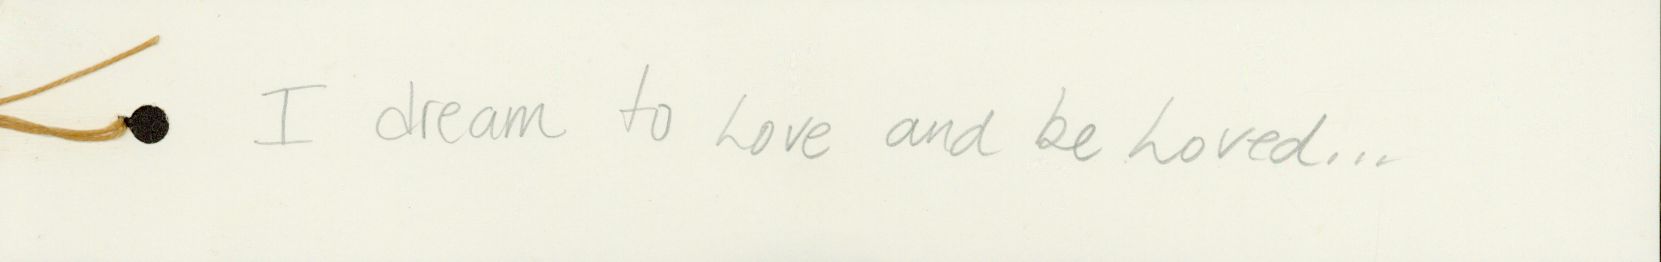 I dream to Love and be Loved...